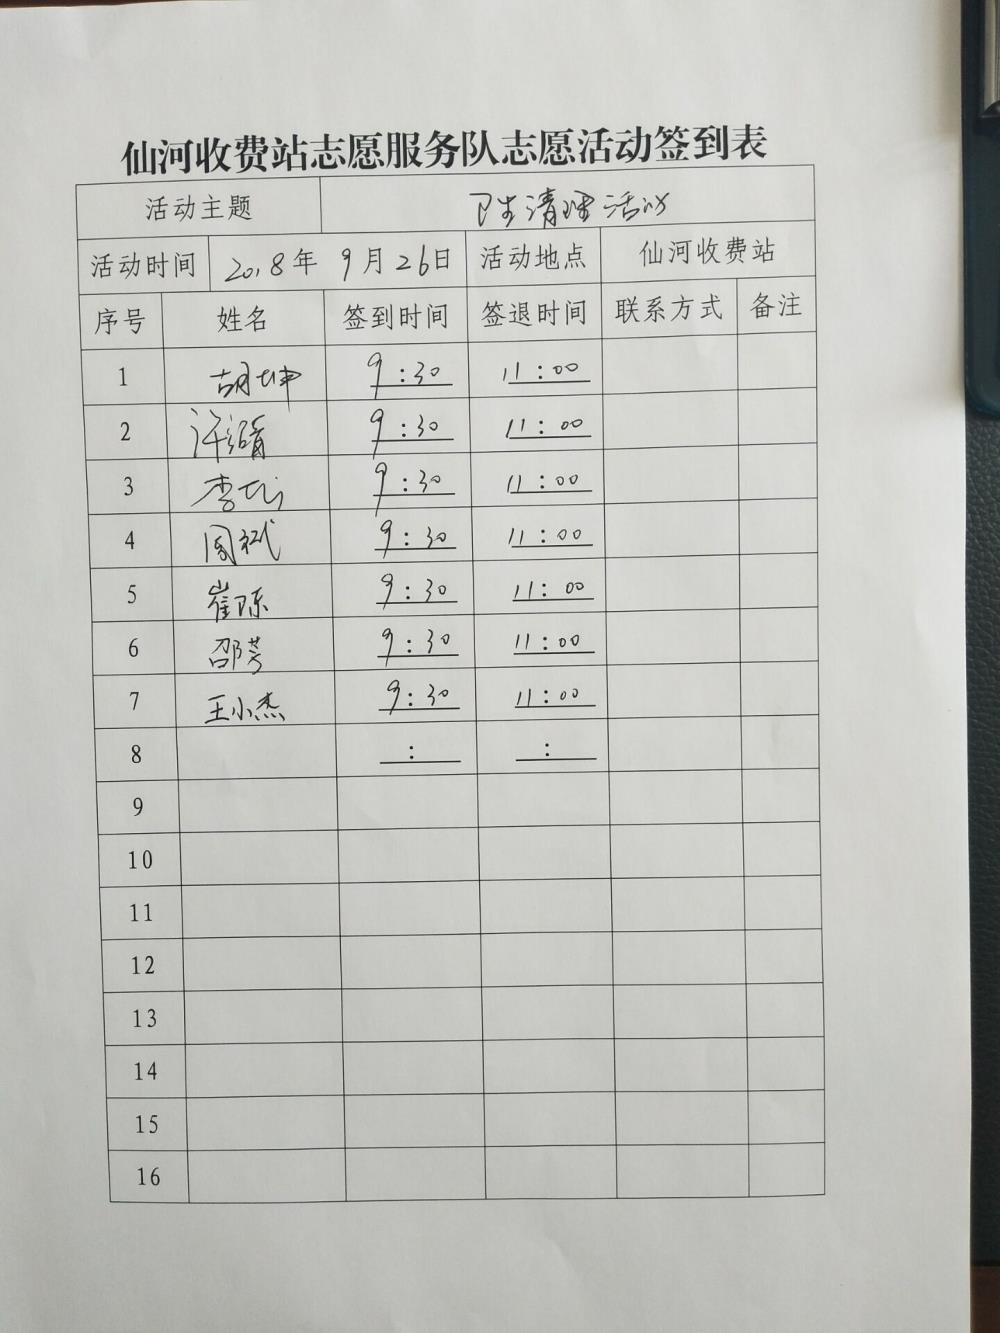 仙河收费站志愿服务队志愿活动签到表
活动主题 卫生清理活动
活动时间 2018年 9月26日 活动地点 仙河收费站
序号 姓名 签到时间 签退时间 联系方式 备注
1 胡坤 9:30 11:00
2 许 9:30 11:00
3 李 9:30 11:00
4 周斌 9:30 11:00
5 崔陈 9:30 11:00
6 邵芳 9:30 11:00
7 王小杰 9:30 11:00
8 : :
9
10
11
12
13
14
15
16